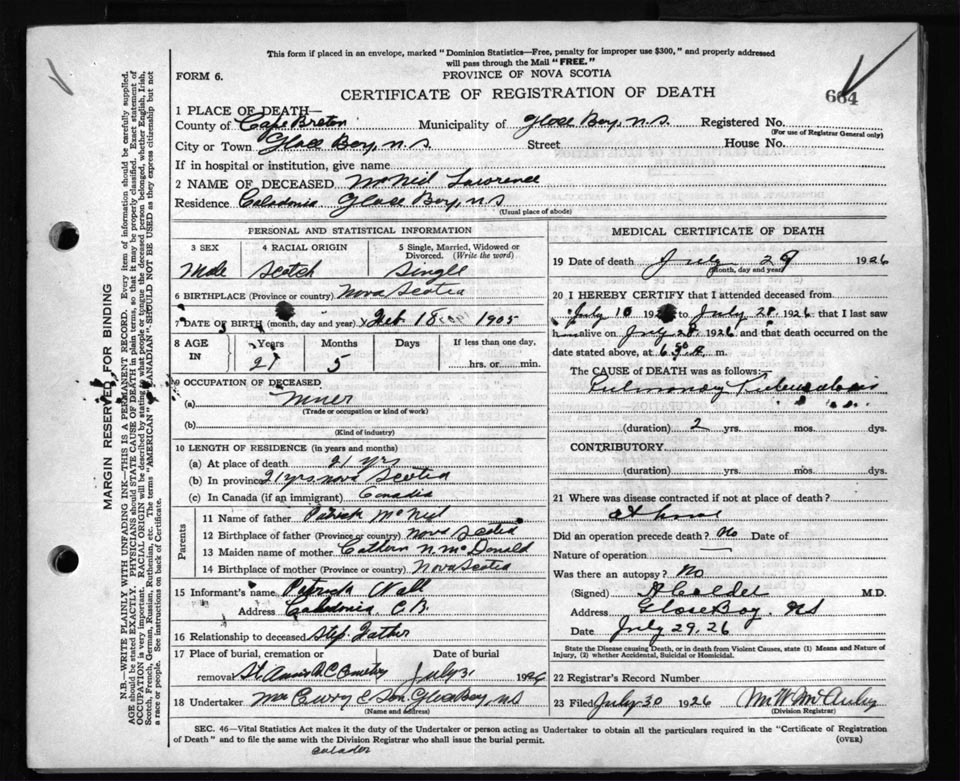 This form if placed in an envelope, marked "Dominion Statistics—Free, penalty for improper use $300," and properly addressed
will pass through the Mail "FREE."
FORM 6.
PROVINCE OF NOVA SCOTIA
CERTIFICATE OF REGISTRATION OF DEATH
664
1 PLACE OF DEATH—
County of Cape Breton Municipality of Glace Bay, N.S. Registered No.
(For use of Registrar General only)
City or Town Glace Bay, N.S Street House No.
If in hospital or institution, give name
2 NAME OF DECEASED McNeil Lawrence
Residence Caledonia Glace Bay, N.S
(Usual place of abode)
PERSONAL AND STATISTICAL INFORMATION
3 SEX 4 RACIAL ORIGIN 5 Single, Married, Widowed or
Divorced. (Write the word)
Male Scotch Single
6 BIRTHPLACE (Province or country) Nova Scotia
7 DATE OF BIRTH (month, day and year) Feb 18 1905
8 AGE IN Years Months Days If less than one day,
21 5 hrs. or min.
9 OCCUPATION OF DECEASED
(a) Miner
(Trade or occupation or kind of work)
(b)
(Kind of industry)
10 LENGTH OF RESIDENCE (in years and months)
(a) At place of death 21 yrs
(b) In province 21 yrs. Nova Scotia
(c) In Canada (if an immigrant) Canadia
Parents
11 Name of father Patrick McNeil
12 Birthplace of father (Province or country) Nova Scotia
13 Maiden name of mother N. McDonald
14 Birthplace of mother (Province or country) Nova Scotia
15 Informant's name Wall
Address Caledonia C.B.
16 Relationship to deceased Step Father
17 Place of burial, cremation or Date of burial
removal St. Anns R C Cemetry July 31 1926
18 Undertaker McCurry & Son. Glace Bay, N.S
(Name and address)
MEDICAL CERTIFICATE OF DEATH
19 Date of death July 29 1926
(Month, day and year)
20 I HEREBY CERTIFY that I attended deceased from
July 10 192 to July 28 1926 that I last saw
h alive on July 28 1926 and that death occurred on
date stated above, at m.
The CAUSE of DEATH was as follows:
Pulmonary Tuberculosis
(duration) 2 yrs. mos. dys.
CONTRIBUTORY
(duration) yrs. mos. dys.
21 Where was disease contracted if not at place of death?
at home
Did an operation precede death? No Date of
Nature of operation
Was there an autopsy? No
(Signed) Calder M.D.
Address Glace Bay NS
Date July 29. 26
State the Disease causing Death, or in death from Violent Causes, state (1) Means and Nature of
Injury, (2) whether Accidental, Suicidal or Homicidal.
22 Registrar's Record Number
23 Filed July 30 1926
(Division Registrar)
SEC. 46—Vital Statistics Act makes it the duty of the Undertaker or person acting as Undertaker to obtain all the particulars required in the "Certificate of Registration
of Death" and to file the same with the Division Registrar who shall issue the burial permit. (OVER)
MARGIN RESERVED FOR BINDING
N.B.—WRITE PLAINLY WITH UNFADING INK—THIS IS A PERMANENT RECORD. Every item of information should be carefully supplied.
AGE should be stated EXACTLY. PHYSICIANS should STATE CAUSE OF DEATH in plain terms, so that it may be properly classified. Exact statement of
OCCUPATION is very important. RACIAL ORIGIN will be described by stating to what people or tongue the deceased person belonged, whether English, Irish,
Scotch, French, German, Russian, Ruthenian, etc. The terms "AMERICAN" or "CANADIAN" SHOULD NOT BE USED as they express citizenship but not
a race or people. See instructions on back of Certificate.